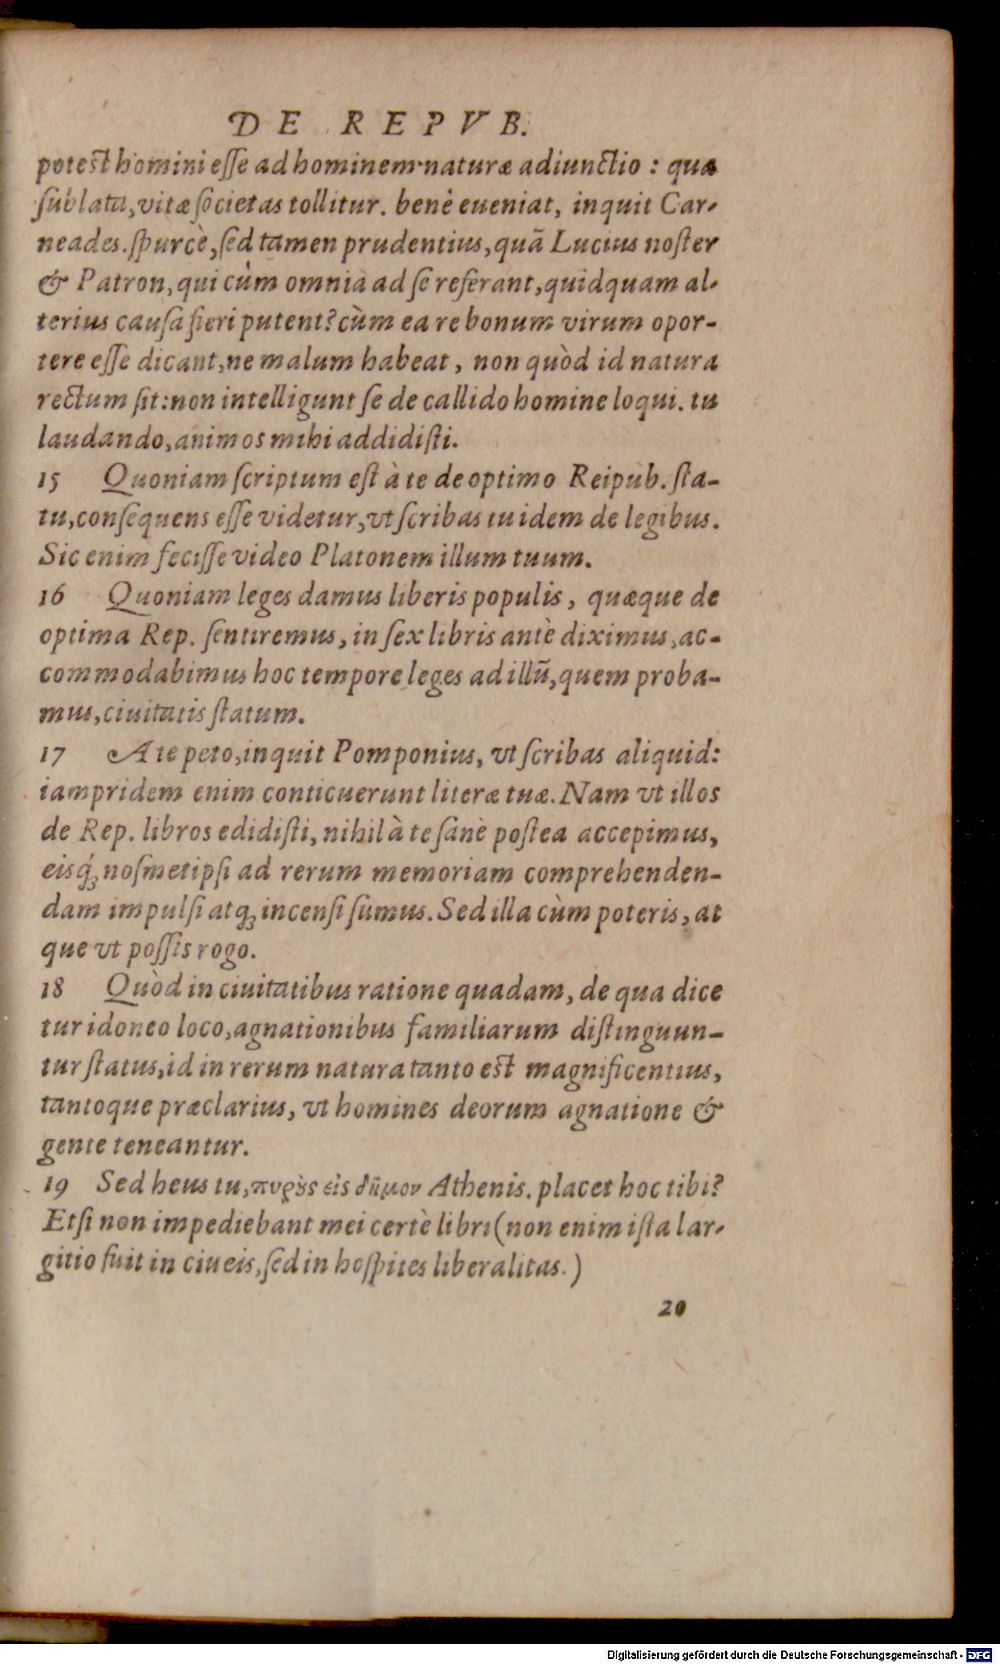 DE REPVB.
potest homini esse ad hominem naturæ adiunctio : qua
sublata, vitæ societas tollitur. benè eueniat, inquit Car-
neades. spurcè, sed tamen prudentius, quã Lucius noster
& Patron, qui cùm omnia ad se referant, quidquam al-
terius causa fieri putent? cùm ea re bonum virum opor-
tere esse dicant, ne malum habeat, non quòd id natura
rectum sit: non intelligunt se de callido homine loqui. tu
laudando, animos mihi addidisti.
15 Quoniam scriptum est à te de optimo Reipub. sta-
tu, consequens esse videtur, vt scribas tu idem de legibus.
Sic enim fecisse video Platonem illum tuum.
16 Quoniam leges damus liberis populis, quæque de
optima Rep. sentiremus, in sex libris antè diximus, ac-
commodabimus hoc tempore leges ad illũ, quem proba-
mus, ciuitatis statum.
17 A te peto, inquit Pomponius, vt scribas aliquid:
iampridem enim conticuerunt literæ tuæ. Nam vt illos
de Rep. libros edidisti, nihil à te sanè postea accepimus,
eisq́ꝫ nosmetipsi ad rerum memoriam comprehenden-
dam impulsi atqꝫ incensi sumus. Sed illa cùm poteris, at
que vt possis rogo.
18 Quòd in ciuitatibus ratione quadam, de qua dice
tur idoneo loco, agnationibus familiarum distinguun-
tur status, id in rerum natura tanto est magnificentius,
tantoque præclarius, vt homines deorum agnatione &
gente teneantur.
19 Sed heus tu, πυρȣ̀ς εἰς δῆμον Athenis. placet hoc tibi?
Etsi non impediebant mei certè libri (non enim ista lar-
gitio fuit in ciueis, sed in hospites liberalitas.)
20
Digitalisierung gefördert durch die Deutsche Forschungsgemeinschaft - DFG